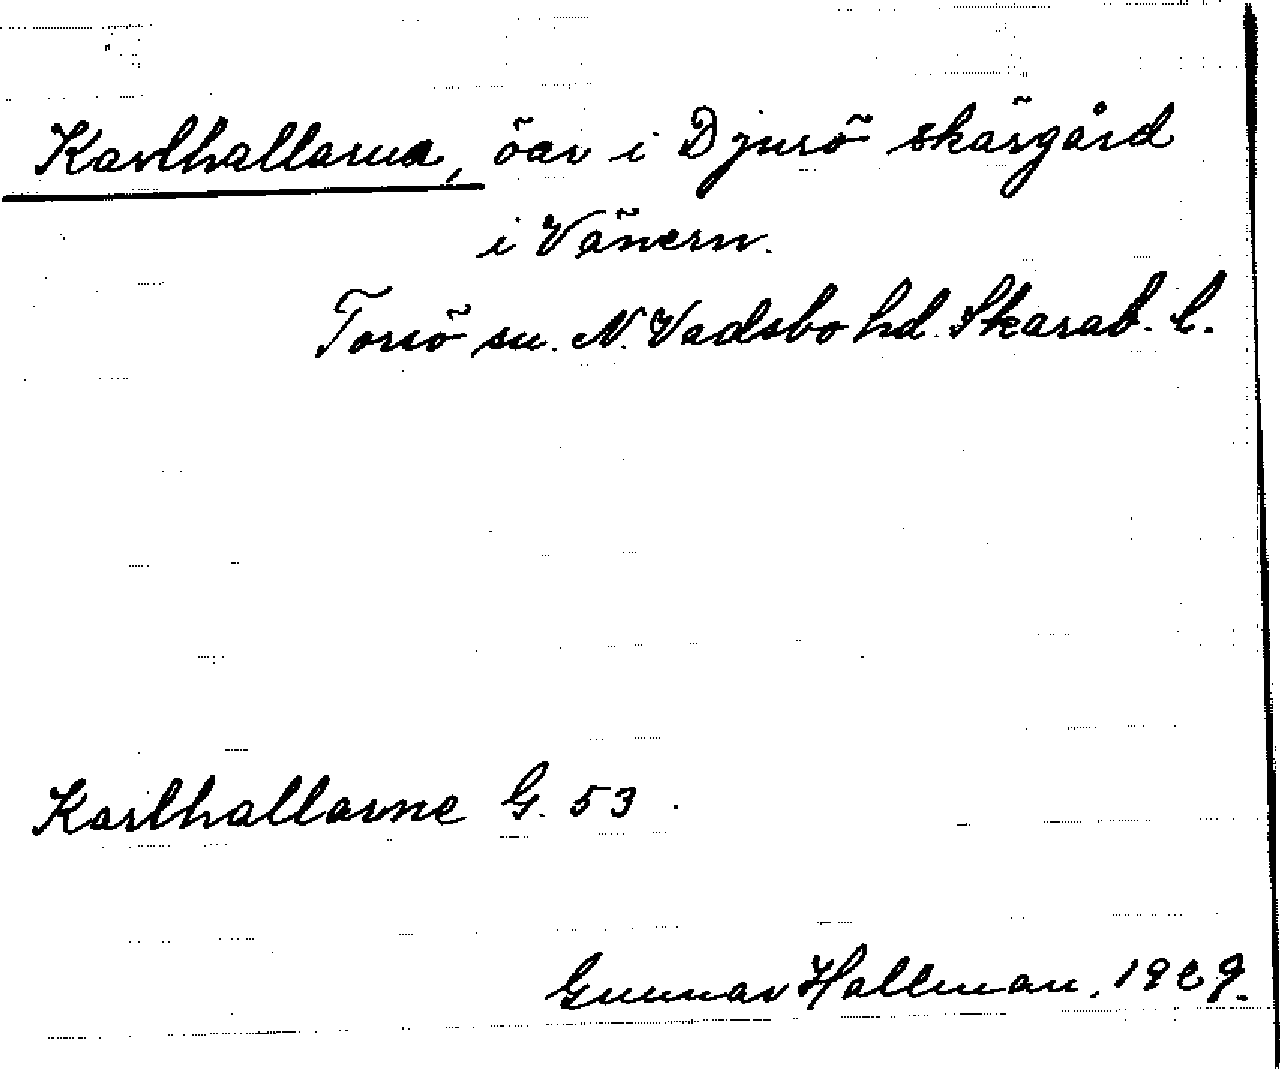 Karlhallarna, öar i Djurö skärgård
i Vänern.
Torsö sn. N. Vadsbo hd. Skarab. l.
Karlhallarne G. 53
Gunnar Hallman, 1929.